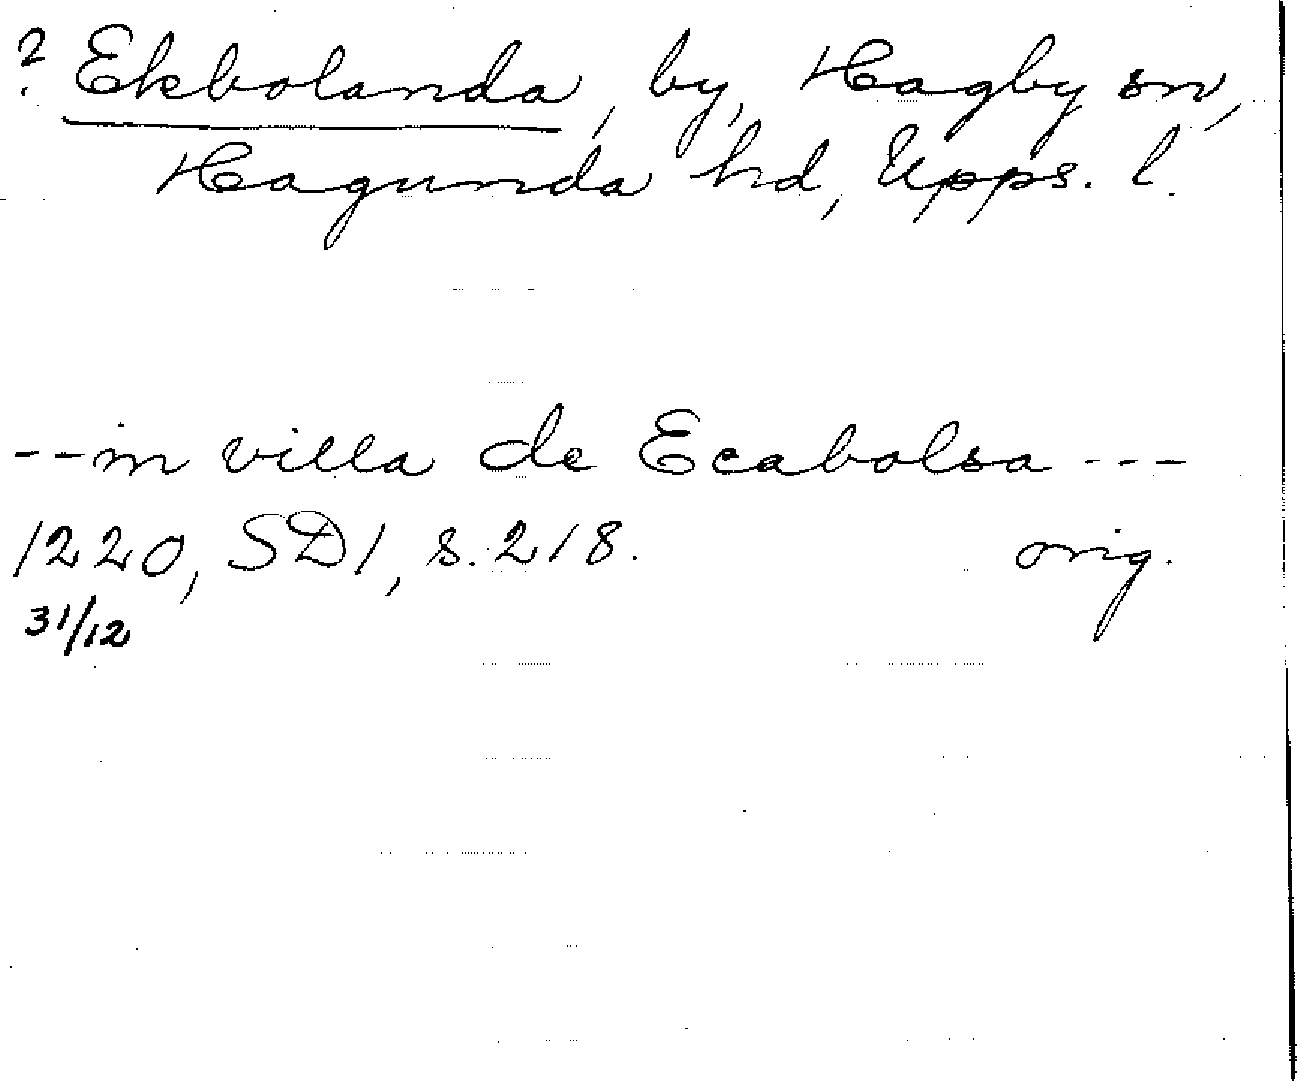 ? Ekbolanda, by, Hagby sn,
Hagunda hd, Upps. l.
--in villa de Ecabolsa ---
1220, SD1, s. 218. orig.
31/12